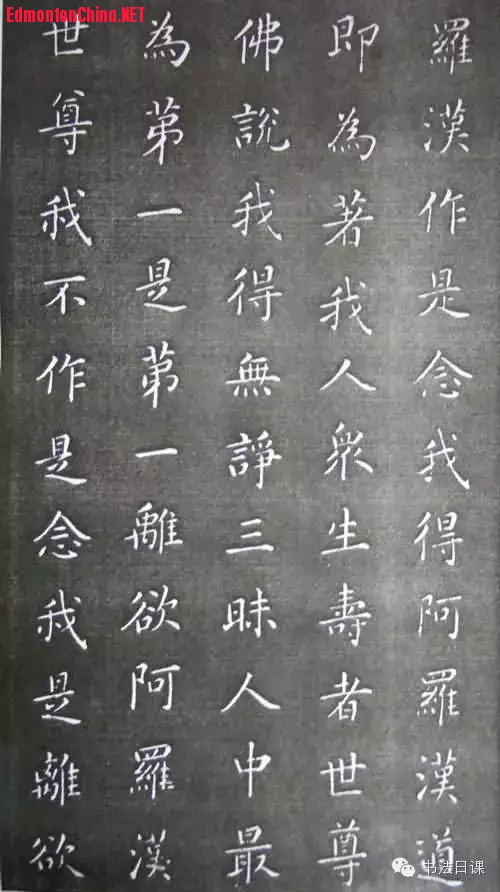 EdmontonChina.NET
羅漢作是念我得阿羅漢道
即為著我人眾生壽者世尊
佛說我得無諍三昧人中最
為苐一是苐一離欲阿羅漢
世尊我不作是念我是離欲
书法日课